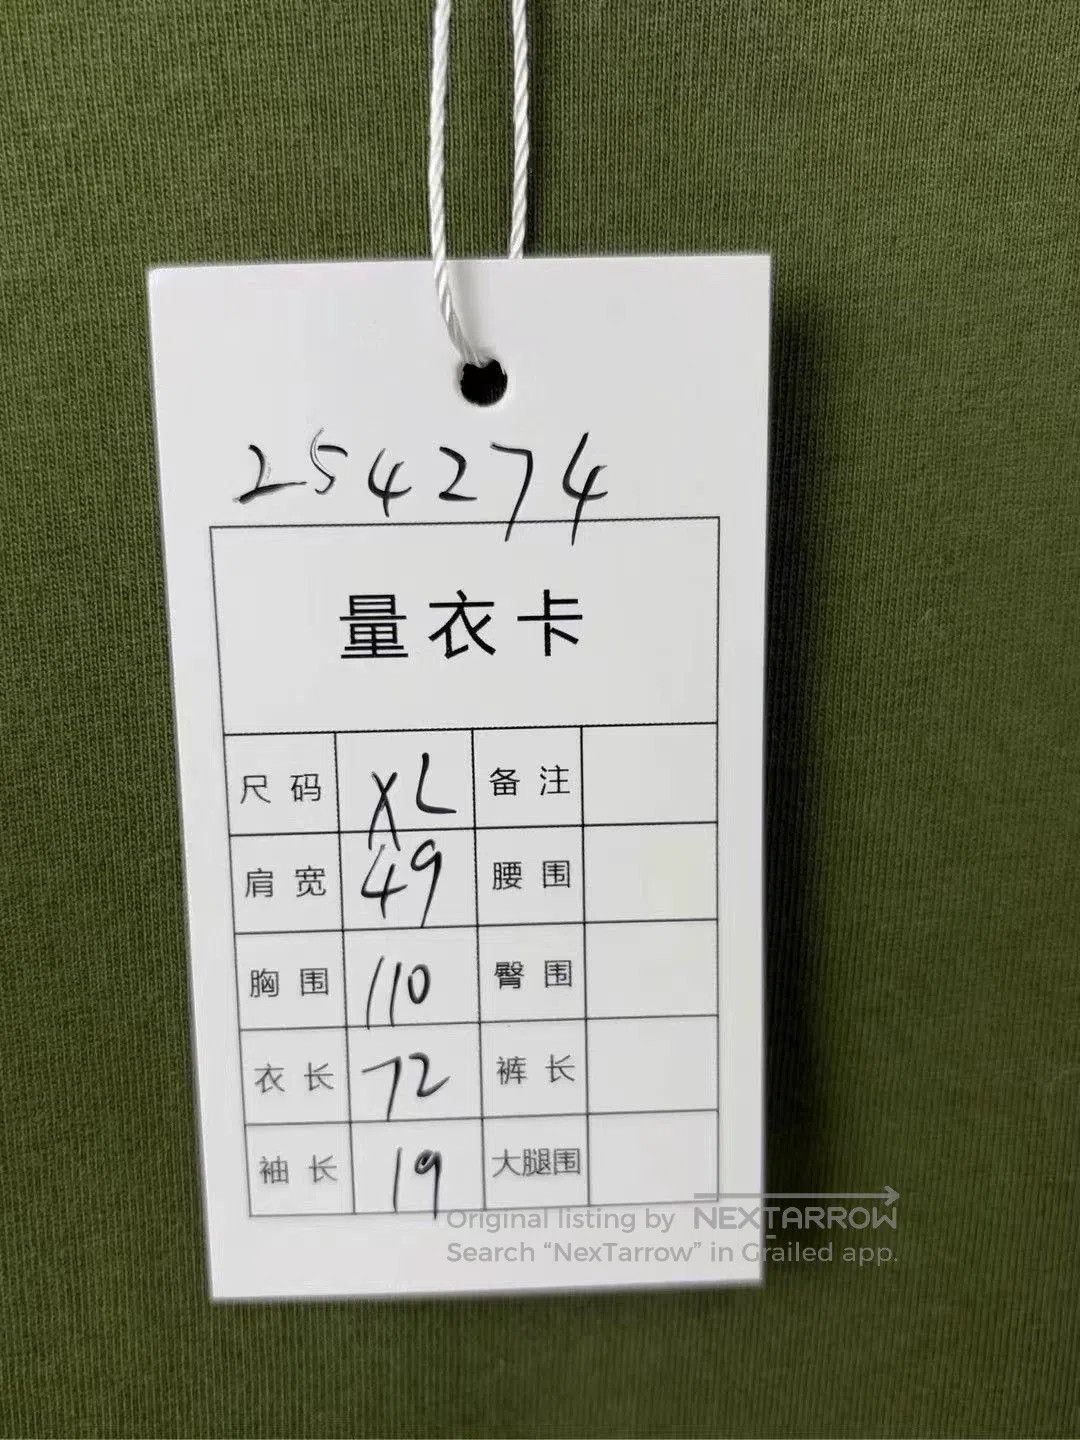 254274
量衣卡
尺码 XL 备注
肩宽 49 腰围
胸围 110 臀围
衣长 72 裤长
袖长 19 大腿围
Original listing by NEXTARROW
Search “NexTarrow” in Grailed app.